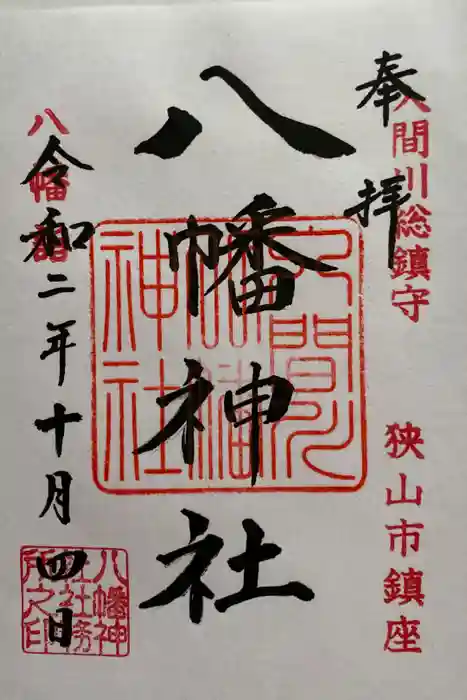 奉拝
入間川総鎮守
狭山市鎮座
八幡神社
入間川
八幡
神社
令和二年十月四日
八幡神
社社務
所之印